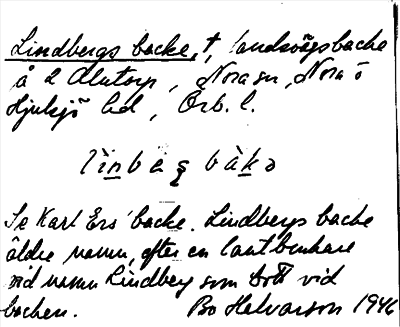 Lindbergs backe, †, landsvägsbacke
å 2 Alntorp, Nora sn, Nora o
Hjulsjö hd, Örb. l.
lìnbærs bàkə
Se Karl Ers' backe. Lindbergs backe
äldre namn, efter en lantbrukare
vid namn Lindberg som bott vid
backen. Bo Halvarson 1946